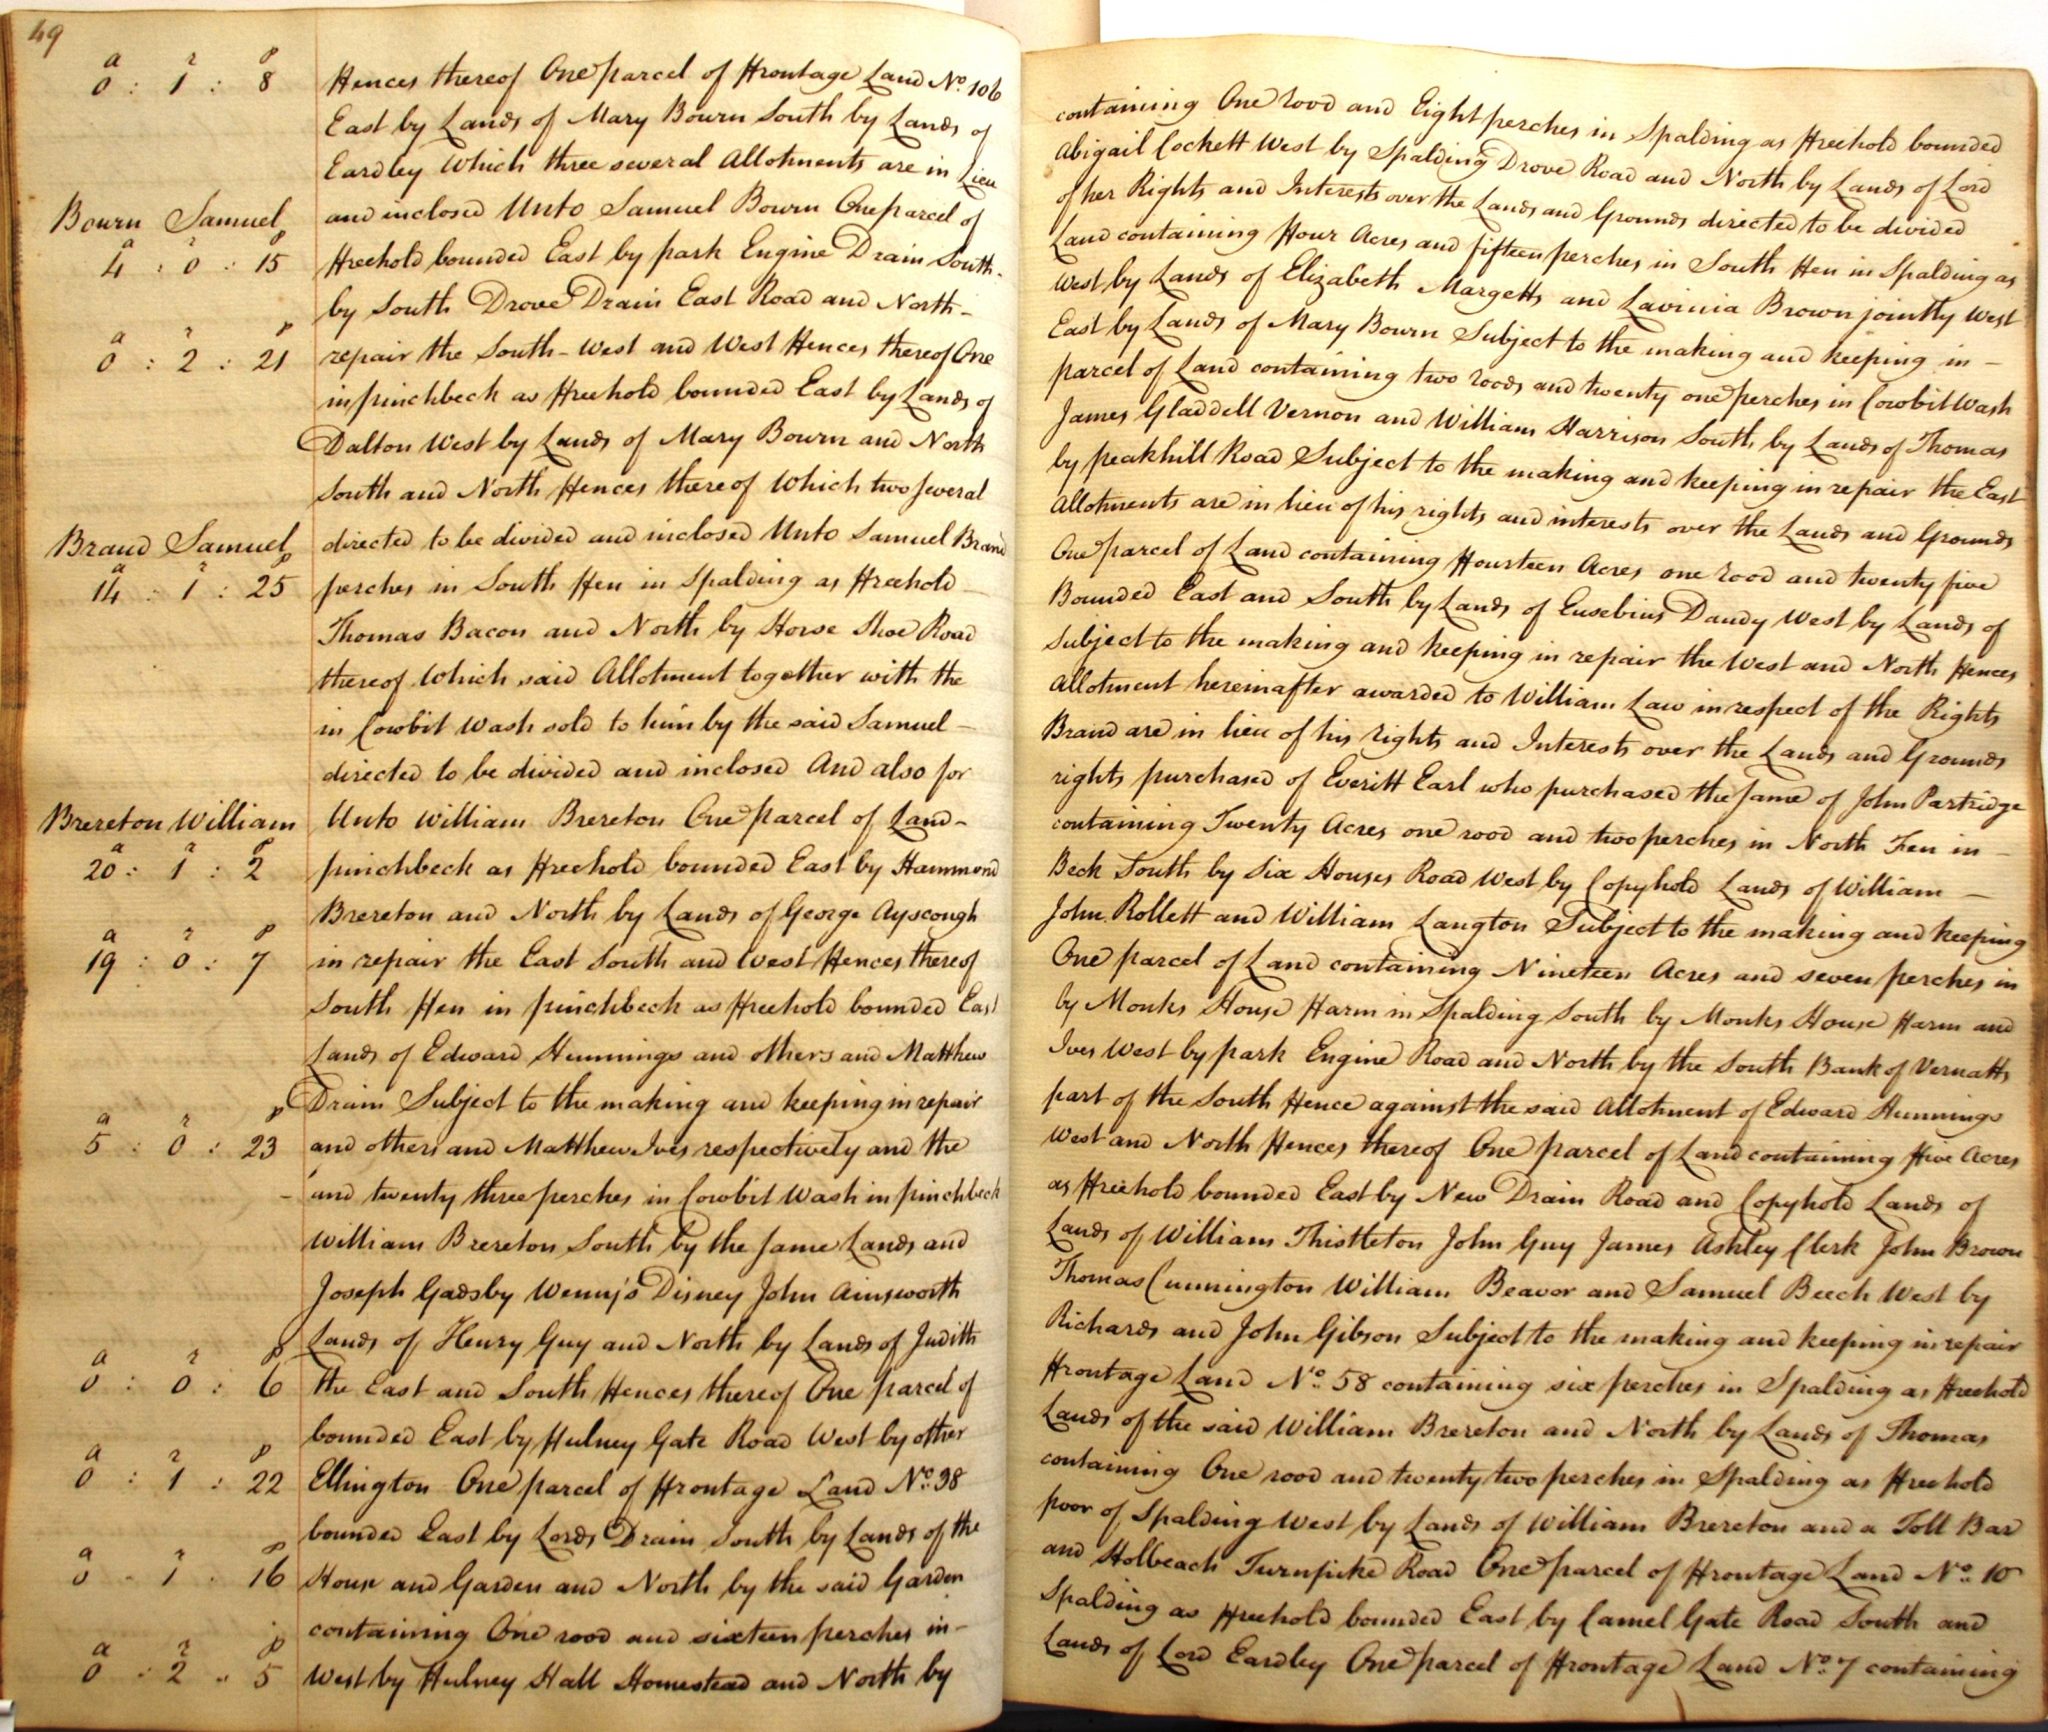 49
a r p
0 : 1 : 8
Fences thereof One parcel of Frontage Land No. 106
containing One rood and Eight perches in Spalding as Freehold bounded
East by Lands of Mary Bourn South by Lands of
Abigail Cockett West by Spalding Drove Road and North by Lands of Lord
Eardley Which three several Allotments are in Lieu
of her Rights and Interests over the Lands and Grounds directed to be divided
Bourn Samuel
and inclosed Unto Samuel Bourn One parcel of
Land containing Four Acres and fifteen perches in South Fen in Spalding as
a r p
4 : 0 : 15
Freehold bounded East by park Engine Drain South-
West by Lands of Elizabeth Margetts and Lavinia Brown jointly West
by South Drove Drain East Road and North-
East by Lands of Mary Bourn Subject to the making and keeping in-
a r p
0 : 2 : 21
repair the South-West and West Fences thereof One
parcel of Land containing two roods and twenty one perches in Cowbit Wash
in pinchbeck as Freehold bounded East by Lands of
James Gladdell Vernon and William Harrison South by Lands of Thomas
Dalton West by Lands of Mary Bourn and North
by peakhill Road Subject to the making and keeping in repair the East
South and North Fences thereof Which two several
Allotments are in lieu of his rights and interests over the Lands and Grounds
Brand Samuel
directed to be divided and inclosed Unto Samuel Brand
One parcel of Land containing Fourteen Acres one rood and twenty five
a r p
14 : 1 : 25
perches in South Fen in Spalding as Freehold
Bounded East and South by Lands of Eusebius Dandy West by Lands of
Thomas Bacon and North by Horse Shoe Road
Subject to the making and keeping in repair the West and North Fences
thereof Which said Allotment together with the
Allotment hereinafter awarded to William Law in respect of the Rights
in Cowbit Wash sold to him by the said Samuel-
Brand are in lieu of his rights and Interests over the Lands and Grounds
directed to be divided and inclosed And also for
rights purchased of Everitt Earl who purchased the same of John Partridge
Brereton William
Unto William Brereton One parcel of Land-
containing Twenty Acres one rood and two perches in North Fen in-
a r p
20 : 1 : 2
pinchbeck as Freehold bounded East by Hammond
Beck South by Six Houses Road West by Copyhold Lands of William-
Brereton and North by Lands of George Ayscough
John Rollett and William Langton Subject to the making and keeping
a r p
19 : 0 : 7
in repair the East South and West Fences thereof
One parcel of Land containing Nineteen Acres and seven perches in
South Fen in pinchbeck as Freehold bounded East
by Monks House Farm in Spalding South by Monks House Farm and
Lands of Edward Hunnings and others and Matthew
Ives West by park Engine Road and North by the South Bank of Vernatts
Drain Subject to the making and keeping in repair
part of the South Fence against the said Allotment of Edward Hunnings
a r p
5 : 0 : 23
and others and Matthew Ives respectively and the
West and North Fences thereof One parcel of Land containing Five Acres
and twenty three perches in Cowbit Wash in pinchbeck
as Freehold bounded East by New Drain Road and Copyhold Lands of
William Brereton South by the same Lands and
Lands of William Thistleton John Guy James Ashley Clerk John Brown
Joseph Gadsby Wenny's Disney John Ainsworth
Thomas Cunnington William Beavor and Samuel Beech West by
Lands of Henry Guy and North by Lands of Judith
Richards and John Gibson Subject to the making and keeping in repair
a r p
0 : 0 : 6
the East and South Fences thereof One parcel of
Frontage Land No. 58 containing six perches in Spalding as Freehold
bounded East by Fulney Gate Road West by other
Lands of the said William Brereton and North by Lands of Thomas
a r p
0 : 1 : 22
Ellington One parcel of Frontage Land No. 38
containing One rood and twenty two perches in Spalding as Freehold
bounded East by Lords Drain South by Lands of the
poor of Spalding West by Lands of William Brereton and a Toll Bar
a r p
0 - 1 - 16
House and Garden and North by the said Garden
and Holbeach Turnpike Road One parcel of Frontage Land No. 10
containing One rood and sixteen perches in-
Spalding as Freehold bounded East by Camel Gate Road South and
a r p
0 : 2 : 5
West by Fulney Hall Homestead and North by
Lands of Lord Eardley One parcel of Frontage Land No. 7 containing